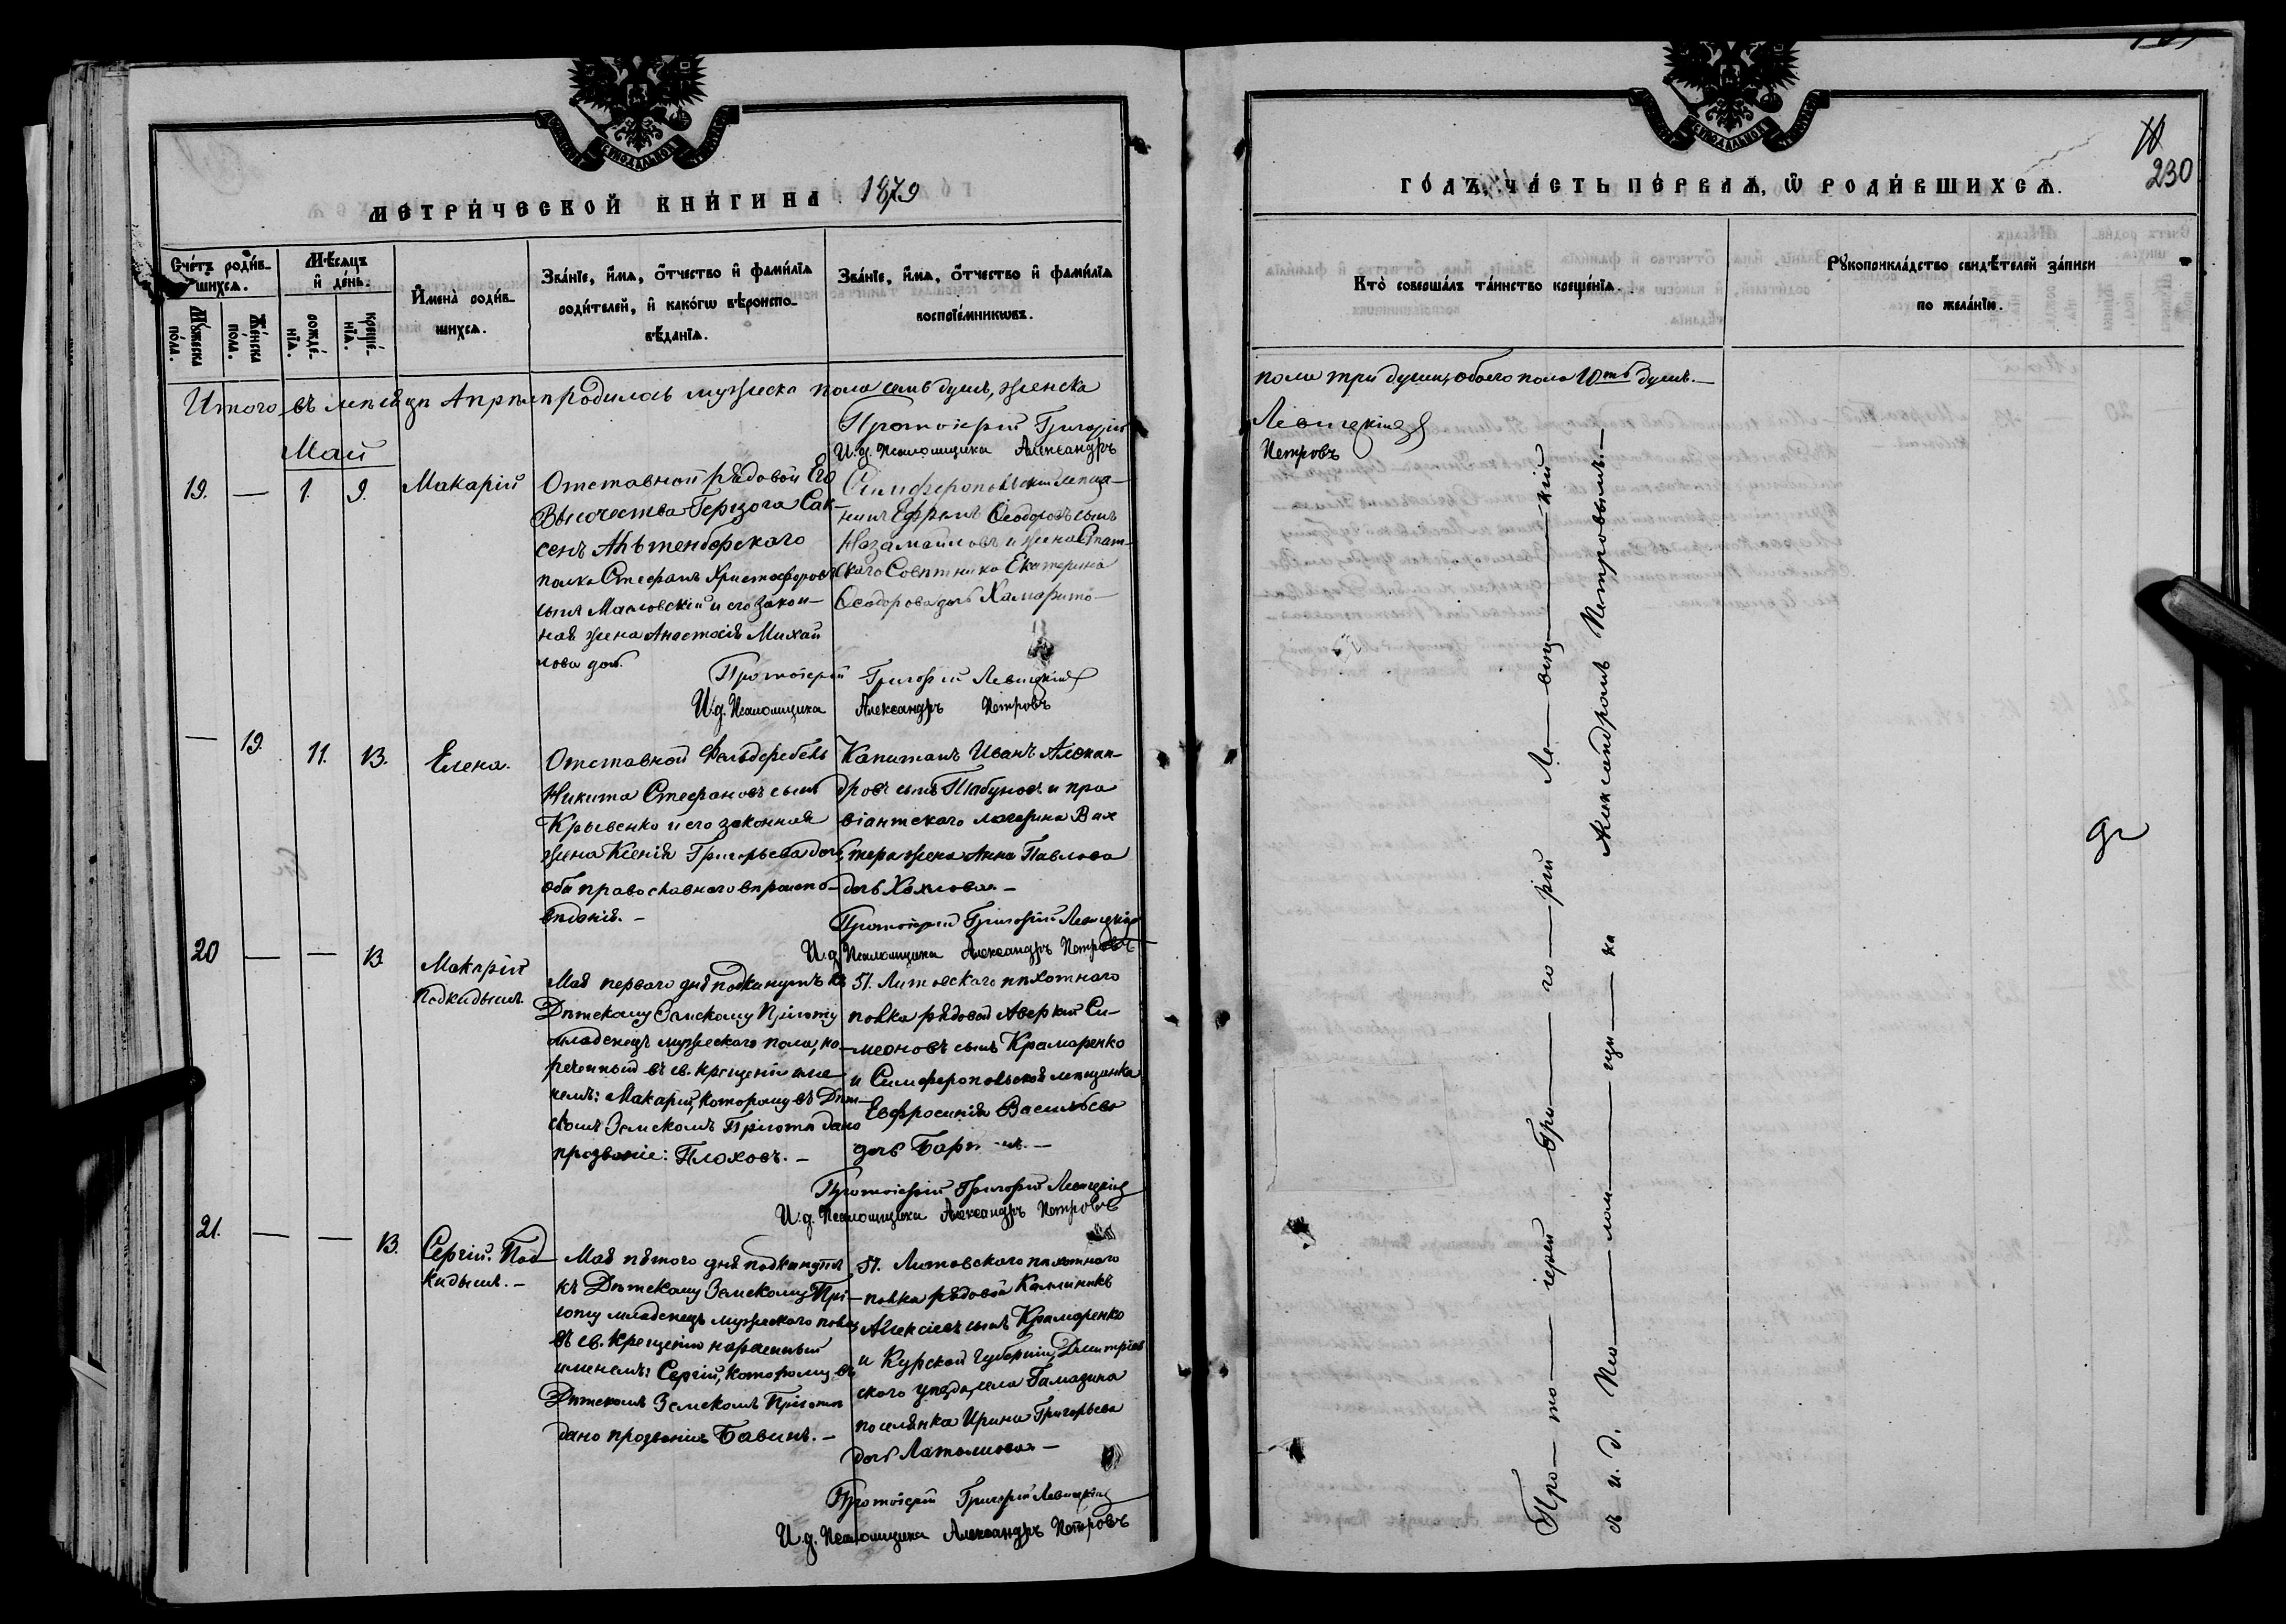 МЕТРИ́ЧЕСКОЙ КНИ́ГИ НА 1879
Счéтъ роди́в-
шихсѧ.
Мꙋ́жеска пóла.
Жéнска пóла.
Мѣ́сѧцъ и҆ дéнь.
рождé-
нїѧ.
креще́-
нїѧ.
И҆менà роди́в-
шихсѧ.
Звáнїе, и҆́мѧ, ѻ҆́тчество и҆ фамѝлїѧ
роди́телей, и҆ какóгѡ вѣроиспо-
вѣ́данїѧ.
Звáнїе, и҆́мѧ, ѻ҆́тчество и҆ фамѝлїѧ
воспрїéмникѡвъ.
Итого въ мѣсяцѣ Апрѣлѣ родилось мужеска пола семь душъ, женска
Протоіерей Григорій
И. д. Псаломщика Александръ
Май
19. — 1. 9. Макарій
Отставной рядовой Его
Высочества Герцога Сак-
сенъ Альтенбургского
полка Стефанъ Христофоровъ
сынъ Масловскій и его закон-
ная жена Анастасія Михай
лова дочь.
Симферопольскій мѣща-
нинъ Ефремъ Ѳеодоровъ сынъ
и жена Стат-
скаго Совѣтника Екатерина
Ѳеодорова дочь
Протоіерей Григорій Левицкій
И. д. Псаломщика Александръ Петровъ
— 19. 11. 13. Елена.
Отставной Фельдфебель
Никита Стефановъ сынъ
Крывенко и его законная
жена Ксенія Григорьева дочь
оба православного вѣроиспо-
вѣданія. —
Капитанъ Иванъ Алексан-
дровъ сынъ Табуновъ и про
віантского магазина Вах
тера жена Анна Павлова
дочь —
Протоіерей Григорій Левицкій
И. д. Псаломщика Александръ Петровъ
20 — — 13. Макарій
Подкидышъ.
Мая перваго дня подкинутъ къ
Дѣтскому Земскому Пріюту
младенецъ мужескаго пола, на-
реченный въ св. крещеніи име-
немъ: Макарій, которому въ Дѣт-
скомъ Земскомъ Пріютѣ дано
прозваніе: Плоховъ. —
51. Литовскаго пѣхотнаго
полка рядовой Аверкій Си-
меоновъ сынъ Крамаренко
и Симферопольская мѣщанка
Евфросинія Васильева
дочь
Протоіерей Григорій Левицкій
И. д. Псаломщика Александръ Петровъ
21. — — 13. Сергій. Под-
кидышъ. —
Мая пятого дня подкинутъ
къ Дѣтскому Земскому Прі-
юту младенецъ мужескаго пола,
въ св. Крещеніи нареченный
именемъ: Сергій, которому въ
Дѣтскомъ Земскомъ Пріютѣ
дано прозваніе Бавинъ. —
51. Литовскаго пѣхотнаго
полка рядовой Каллиникъ
Алексіевъ сынъ Крамаренко
и Курской Губерніи, Дмитріев
ского уѣзда, села Гамазина
поселянка Ирина Григорьева
дочь —
Протоіерей Григорій Левицкій
И. д. Псаломщика Александръ Петровъ
ГÓДЪ, ЧÁСТЬ ПÉРВАѦ, Ѽ РОДИ́ВШИХСѦ.
230
Ктò соверша́лъ тáинство креще́нїѧ.
Рꙋкоприклáдство свидѣ́телей зáписи
по желáнїю.
пола три души, обоего пола 10ть душъ. —
Левицкій
Петровъ
Про—то—іерей Гри—го—рій Ле—виц—кій
съ и. д. Пса—лом—щи—ка Александромъ Петровымъ. —